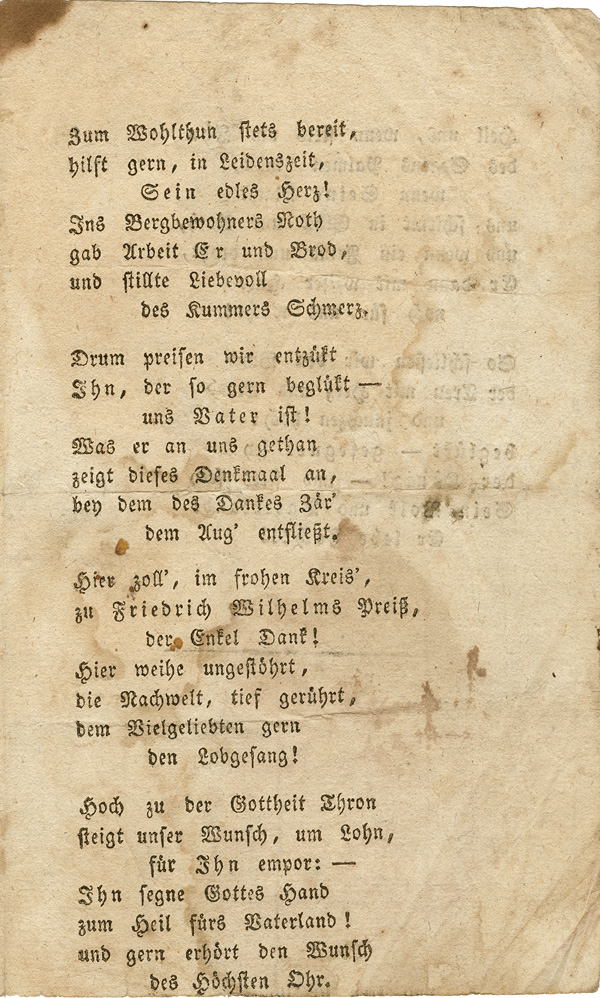 Zum Wohlthun stets bereit,
hilft gern, in Leidenszeit,
Sein edles Herz!
Ins Bergbewohners Noth
gab Arbeit Er und Brod,
und stillte Liebevoll
des Kummers Schmerz.
Drum preisen wir entzükt
Ihn, der so gern beglükt —
uns Vater ist!
Was er an uns gethan
zeigt dieses Denkmaal an,
bey dem des Dankes Zär'
dem Aug' entfließt.
Hier zoll', im frohen Kreis',
zu Friedrich Wilhelms Preiß,
der Enkel Dank!
Hier weihe ungestöhrt,
die Nachwelt, tief gerührt,
dem Vielgeliebten gern
den Lobgesang!
Hoch zu der Gottheit Thron
steigt unser Wunsch, um Lohn,
für Ihn empor: —
Ihn segne Gottes Hand
zum Heil fürs Vaterland!
und gern erhört den Wunsch
des Höchsten Ohr.